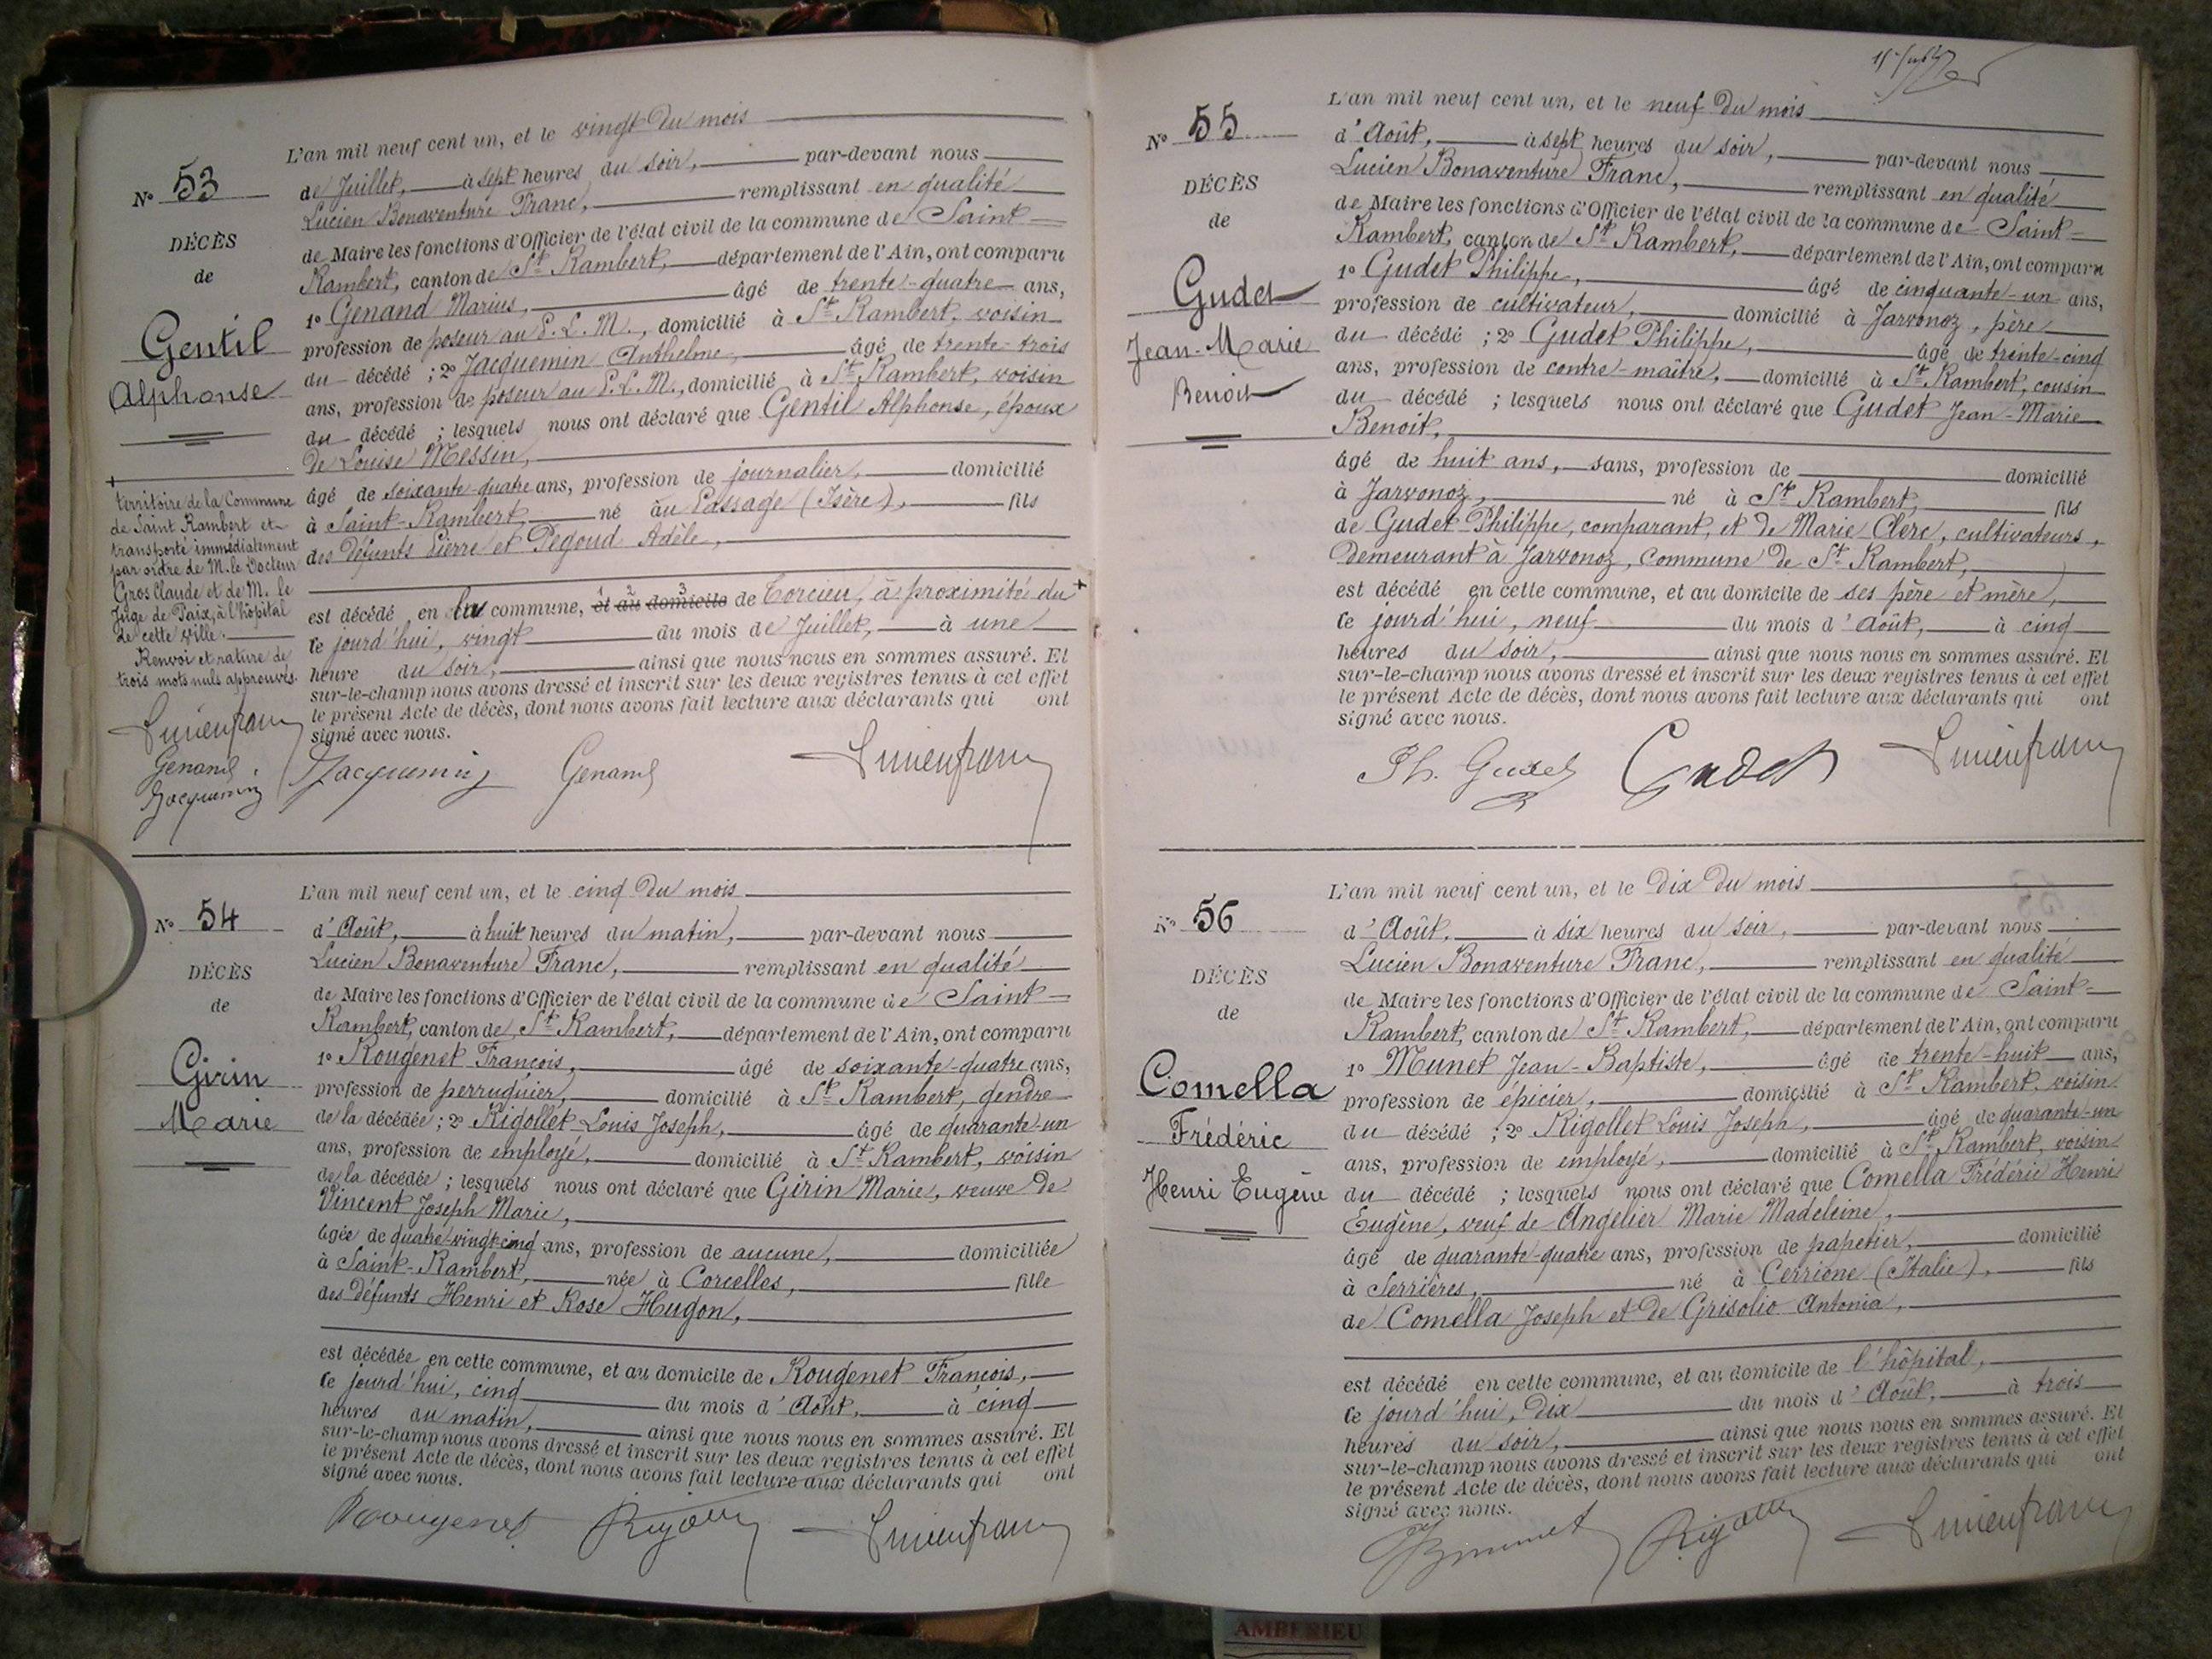 L'an mil neuf cent un, et le vingt du mois
N° 53
de Juillet, à sept heures du soir, par-devant nous
Lucien Bonaventure Franc, remplissant en qualité
DÉCÈS
de
de Maire les fonctions d'Officier de l'état civil de la commune de Saint-
Rambert, canton de St Rambert, département de l'Ain, ont comparu
1° Genand Marius, âgé de trente-quatre ans,
profession de poseur au P. L. M., domicilié à St Rambert, voisin
Gentil
Alphonse
du décédé ; 2° Jacquemin Anthelme, âgé de trente-trois
ans, profession de poseur au P. L. M., domicilié à St Rambert, voisin
du décédé ; lesquels nous ont déclaré que Gentil Alphonse, époux
de Louise Messin,
âgé de soixante-quatre ans, profession de journalier, domicilié
à Saint-Rambert, né au Passage (Isère), fils
des défunts Pierre et Pegoud Adèle,
est décédé en la commune, et au domicile de Torcieu, à proximité du +
1 2 3
ce jourd'hui, vingt du mois de Juillet, à une
heure du soir, ainsi que nous nous en sommes assuré. Et
sur-le-champ nous avons dressé et inscrit sur les deux registres tenus à cet effet
le présent Acte de décès, dont nous avons fait lecture aux déclarants qui ont
signé avec nous.
+
territoire de la Commune
de Saint Rambert et
transporté immédiatement
par ordre de M. le Docteur
Gros Claude et de M. le
Juge de Paix, à l'hôpital
de cette ville.
Renvoi et rature de
trois mots nuls approuvés.
Lucien franc
Genand
Jacquemin
Jacquemin Genand Lucien franc
L'an mil neuf cent un, et le cinq du mois
N° 54
d'Août, à huit heures du matin, par-devant nous
Lucien Bonaventure Franc, remplissant en qualité
DÉCÈS
de
de Maire les fonctions d'Officier de l'état civil de la commune de Saint-
Rambert, canton de St Rambert, département de l'Ain, ont comparu
1° Rougenet François, âgé de soixante-quatre ans,
Girin
Marie
profession de perruquier, domicilié à St Rambert, gendre
de la décédée ; 2° Rigollet Louis Joseph, âgé de quarante-un
ans, profession de employé, domicilié à St Rambert, voisin
de la décédée ; lesquels nous ont déclaré que Girin Marie, veuve de
Vincent Joseph Marie,
âgée de quatre-vingt-cinq ans, profession de aucune, domiciliée
à Saint-Rambert, née à Corcelles, fille
des défunts Henri et Rose Hugon,
est décédée en cette commune, et au domicile de Rougenet François,
ce jourd'hui, cinq du mois d'Août, à cinq
heures du matin, ainsi que nous nous en sommes assuré. Et
sur-le-champ nous avons dressé et inscrit sur les deux registres tenus à cet effet
le présent Acte de décès, dont nous avons fait lecture aux déclarants qui ont
signé avec nous.
Rougenet Rigollet Lucien franc
L'an mil neuf cent un, et le neuf du mois
N° 55
d'Août, à sept heures du soir, par-devant nous
Lucien Bonaventure Franc, remplissant en qualité
DÉCÈS
de
de Maire les fonctions d'Officier de l'état civil de la commune de Saint-
Rambert, canton de St Rambert, département de l'Ain, ont comparu
1° Gudet Philippe, âgé de cinquante-un ans,
Gudet
Jean-Marie
Benoit
profession de cultivateur, domicilié à Jarvonoz, père
du décédé ; 2° Gudet Philippe, âgé de trente-cinq
ans, profession de contre-maître, domicilié à St Rambert, cousin
du décédé ; lesquels nous ont déclaré que Gudet Jean-Marie
Benoit,
âgé de huit ans, sans, profession de domicilié
à Jarvonoz, né à St Rambert, fils
de Gudet Philippe, comparant, et de Marie Clerc, cultivateurs,
demeurant à Jarvonoz, commune de St Rambert,
est décédé en cette commune, et au domicile de ses père et mère,
ce jourd'hui, neuf du mois d'Août, à cinq
heures du soir, ainsi que nous nous en sommes assuré. Et
sur-le-champ nous avons dressé et inscrit sur les deux registres tenus à cet effet
le présent Acte de décès, dont nous avons fait lecture aux déclarants qui ont
signé avec nous.
Ph. Gudet Gudet Lucien franc
L'an mil neuf cent un, et le dix du mois
N° 56
d'Août, à six heures du soir, par-devant nous
Lucien Bonaventure Franc, remplissant en qualité
DÉCÈS
de
de Maire les fonctions d'Officier de l'état civil de la commune de Saint-
Rambert, canton de St Rambert, département de l'Ain, ont comparu
1° Munet Jean-Baptiste, âgé de trente-huit ans,
Comella
Frédéric
Henri Eugène
profession de épicier, domicilié à St Rambert, voisin
du décédé ; 2° Rigollet Louis Joseph, âgé de quarante-un
ans, profession de employé, domicilié à St Rambert, voisin
du décédé ; lesquels nous ont déclaré que Comella Frédéric Henri
Eugène, veuf de Angelier Marie Madeleine,
âgé de quarante-quatre ans, profession de papetier, domicilié
à Serrières, né à Cerrione (Italie), fils
de Comella Joseph et de Grisolio Antonia,
est décédé en cette commune, et au domicile de l'hôpital,
ce jourd'hui, dix du mois d'Août, à trois
heures du soir, ainsi que nous nous en sommes assuré. Et
sur-le-champ nous avons dressé et inscrit sur les deux registres tenus à cet effet
le présent Acte de décès, dont nous avons fait lecture aux déclarants qui ont
signé avec nous.
Rigollet Lucien franc
AMBERIEU